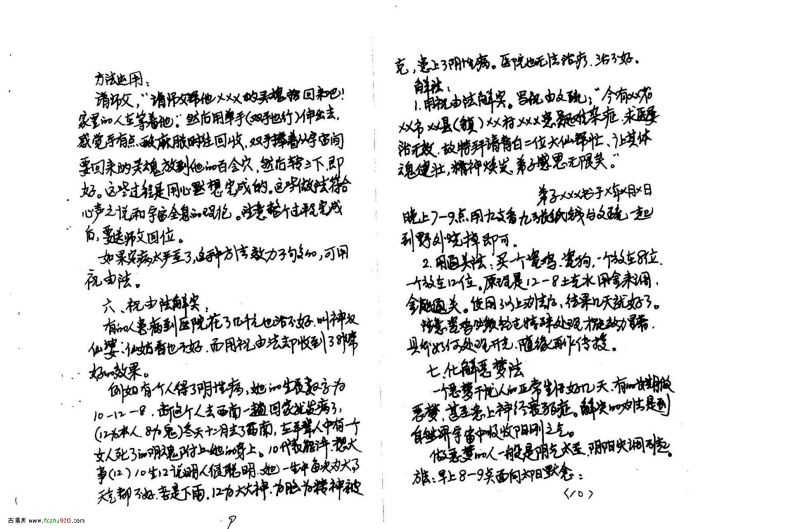 方法运用：
请师父，“请师父将他×××的灵魂招回来吧！
家里的人在等着他”；然后用单手(双手也行)伸出去，
感觉手有点 时往回收，双手捧着从宇宙间
要回来的灵魂放到他的百会穴，然后转三下，即
好。这些过程是用心默想完成的。这些做法符合
心声之说和宇宙全息的理论。注意整个过程完成
后，要送师父回位。
如果家病太严重了，这种方法效力不够的，可用
祝由法。
六、祝由法解实：
有的人患病到医院花了几千元也治不好，叫神汉
仙婆、仙姑看也不好，而用祝由法却收到了非常
好的效果。
例如有个人得了阴性病，她的生辰数字为
10－12－8，而这个人去西南一趟回家就发病了，
(12为木人，8为鬼)冬天十二月去了西南，在半掌人中有一个
女人死了的阴魂附上她的身上。10代表能评、想大
事(12)10生12说明人很聪明，她一生中每次为大事
天气都不好，若是下雨，12为大、为神、为脑为精神被
9
克，患上了阴性病。医院也无法治疗，治不好。
解法：
1.用祝由法解实。写祝由文疏：“今有××省
××市××县(镇)××村×××患疑难杂症，求医
治无效，故特拜请青白二位大仙帮忙，让其体
魂健壮，精神焕发，弟子感恩无限矣。”
弟子×××书于×年×月×日
晚上7－9点，用九支香九张纸钱与文疏一起
到野外烧掉即可。
2.用通关法：买一个瓷鸡、瓷狗，一个放在8位，
一个放在12位。原理是12－8土克水用金来调，
金能通关。使用了以上办法后，结果几天就好了。
注意瓷鸡 特殊处理，才能效力显 ，
具体如何处理开光，随缘再作传授。
七、化解恶梦法
一个恶梦干扰人的正常生活好几天，有的长期做
恶梦，甚至患上神经衰弱症。解决的办法是到
自然界宇宙中吸收阳刚之气。
做恶梦的人一般是阴气太重，阴阳失调引起。
施：早上8－9点面向太阳默念：
(10)
古籍库 www.fczhu920.com